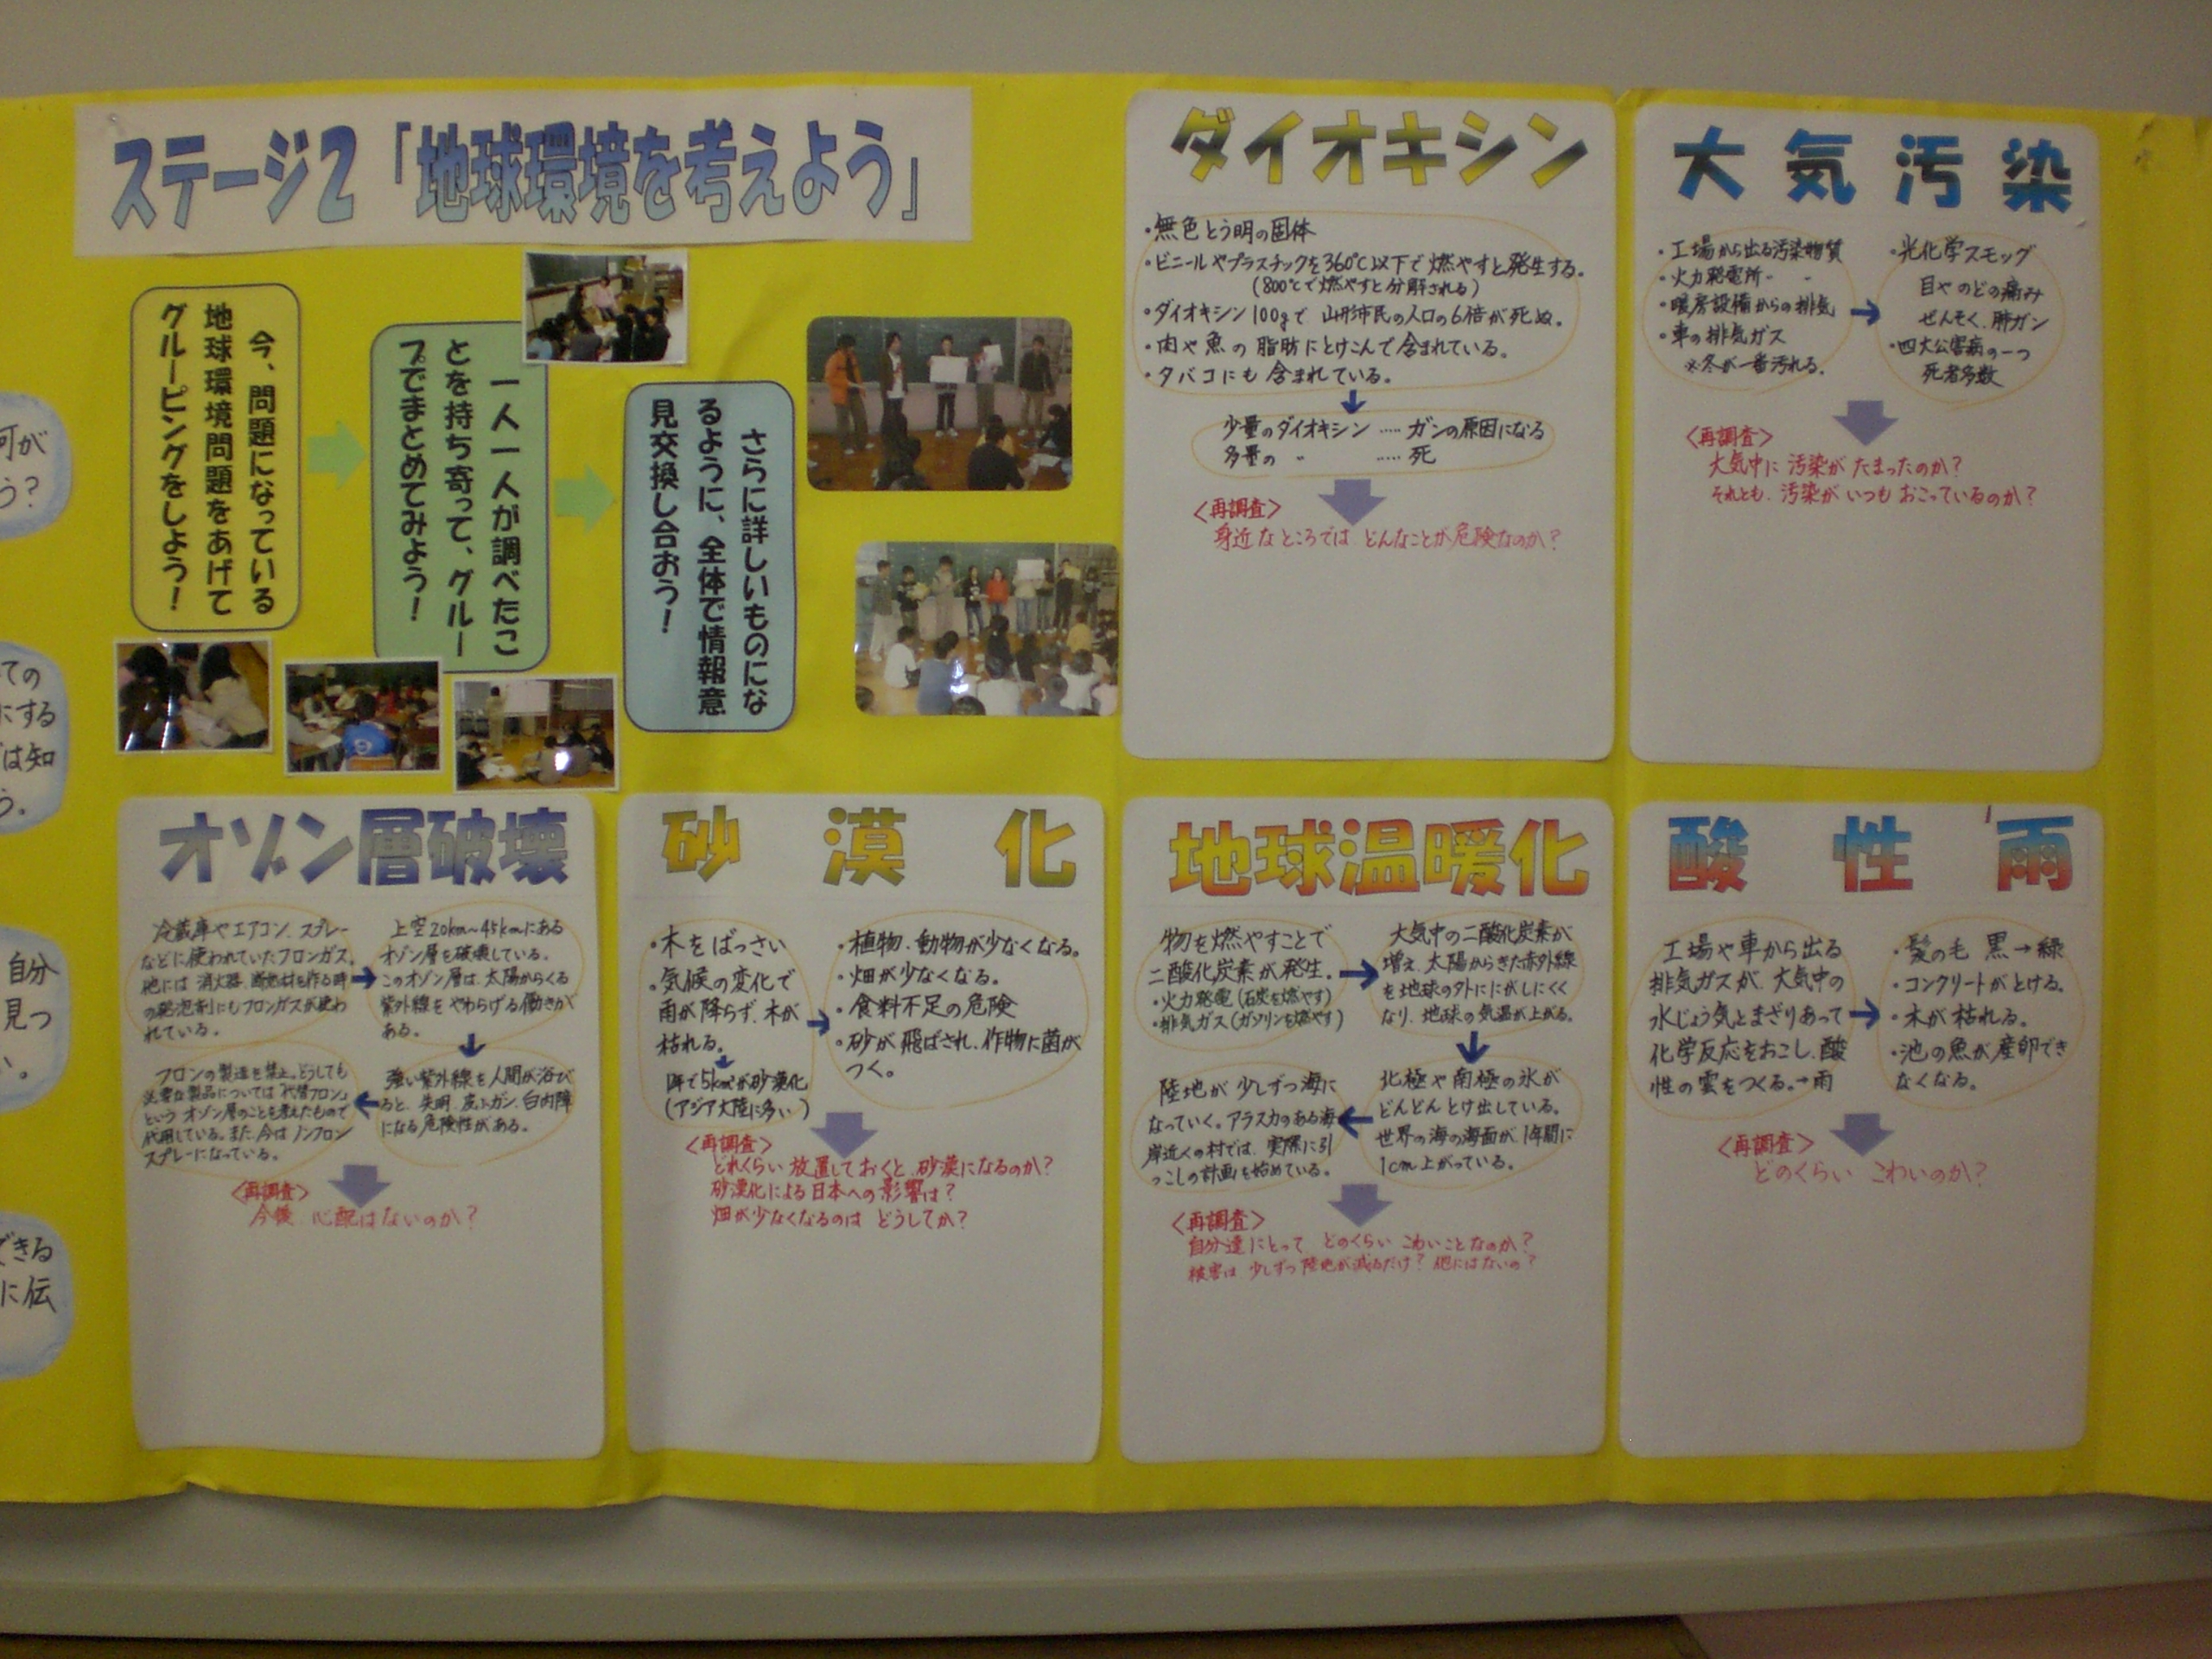 ステージ2「地球環境を考えよう」
今、問題になっている
地球環境問題をあげて
グルーピングをしよう！
一人一人が調べたこ
とを持ち寄って、グルー
プでまとめてみよう！
さらに詳しいものにな
るように、全体で情報意
見交換し合おう！
ダイオキシン
・無色とう明の固体
・ビニールやプラスチックを360℃以下で燃やすと発生する。
(800℃で燃やすと分解される)
・ダイオキシン100gで 山形市民の人口の6倍が死ぬ。
・肉や魚の脂肪にとけこんで含まれている。
・タバコにも含まれている。
少量のダイオキシン ‥‥ ガンの原因になる
多量の 〃 ‥‥‥ 死
〈再調査〉
身近なところでは どんなことが危険なのか？
大気汚染
・工場から出る汚染物質
・火力発電所〃 〃
・暖房設備からの排気
・車の排気ガス
※冬が一番汚れる。
・光化学スモッグ
目やのどの痛み
ぜんそく、肺ガン
・四大公害病の一つ
死者多数
〈再調査〉
大気中に 汚染が たまったのか？
それとも、汚染が いつも おこっているのか？
オゾン層破壊
冷蔵庫やエアコン、スプレー
などに使われていたフロンガス。
他には 消火器、断熱材を作る時
の発泡剤にもフロンガスが使わ
れている。
上空20km～45kmにある
オゾン層を破壊している。
このオゾン層は、太陽からくる
紫外線を やわらげる働きが
ある。
強い紫外線を人間が浴び
ると、失明、皮ふガン、白内障
になる危険性がある。
フロンの製造を禁止。どうしても
必要な製品については「代替フロン」
という オゾン層のことを考えたもので
代用している。また、今は ノンフロン
スプレーになっている。
〈再調査〉
今後 心配はないのか？
砂漠化
・木をばっさい
・気候の変化で
雨が降らず、木が
枯れる。
1年で5km²が砂漠化
(アジア大陸に多い)
・植物、動物が少なくなる。
・畑が少なくなる。
・食料不足の危険
・砂が飛ばされ、作物に菌が
つく。
〈再調査〉
どれくらい 放置しておくと、砂漠になるのか？
砂漠化による日本への影響は？
畑が少なくなるのは どうしてか？
地球温暖化
物を燃やすことで
二酸化炭素が発生。
・火力発電(石炭を燃やす)
・排気ガス(ガソリンを燃やす)
大気中の二酸化炭素が
増え、太陽からきた赤外線
を地球の外ににがしにくく
なり、地球の気温が上がる。
北極や南極の氷が
どんどん とけ出している。
世界の海の海面が、1年間に
1cm上がっている。
陸地が 少しずつ海に
なっていく。アラスカのある海
岸近くの村では、実際に引
っこしの計画を始めている。
〈再調査〉
自分達にとって どのくらい こわいことなのか？
被害は 少しずつ陸地が減るだけ？ 他にはないの？
酸性雨
工場や車から出る
排気ガスが、大気中の
水じょう気とまざりあって
化学反応をおこし、酸
性の雲をつくる。→雨
・髪の毛 黒→緑
・コンクリートがとける。
・木が枯れる。
・池の魚が産卵でき
なくなる。
〈再調査〉
どのくらい こわいのか？
何が
う？
ての
にする
は知
う。
自分
見つ
い。
できる
に伝